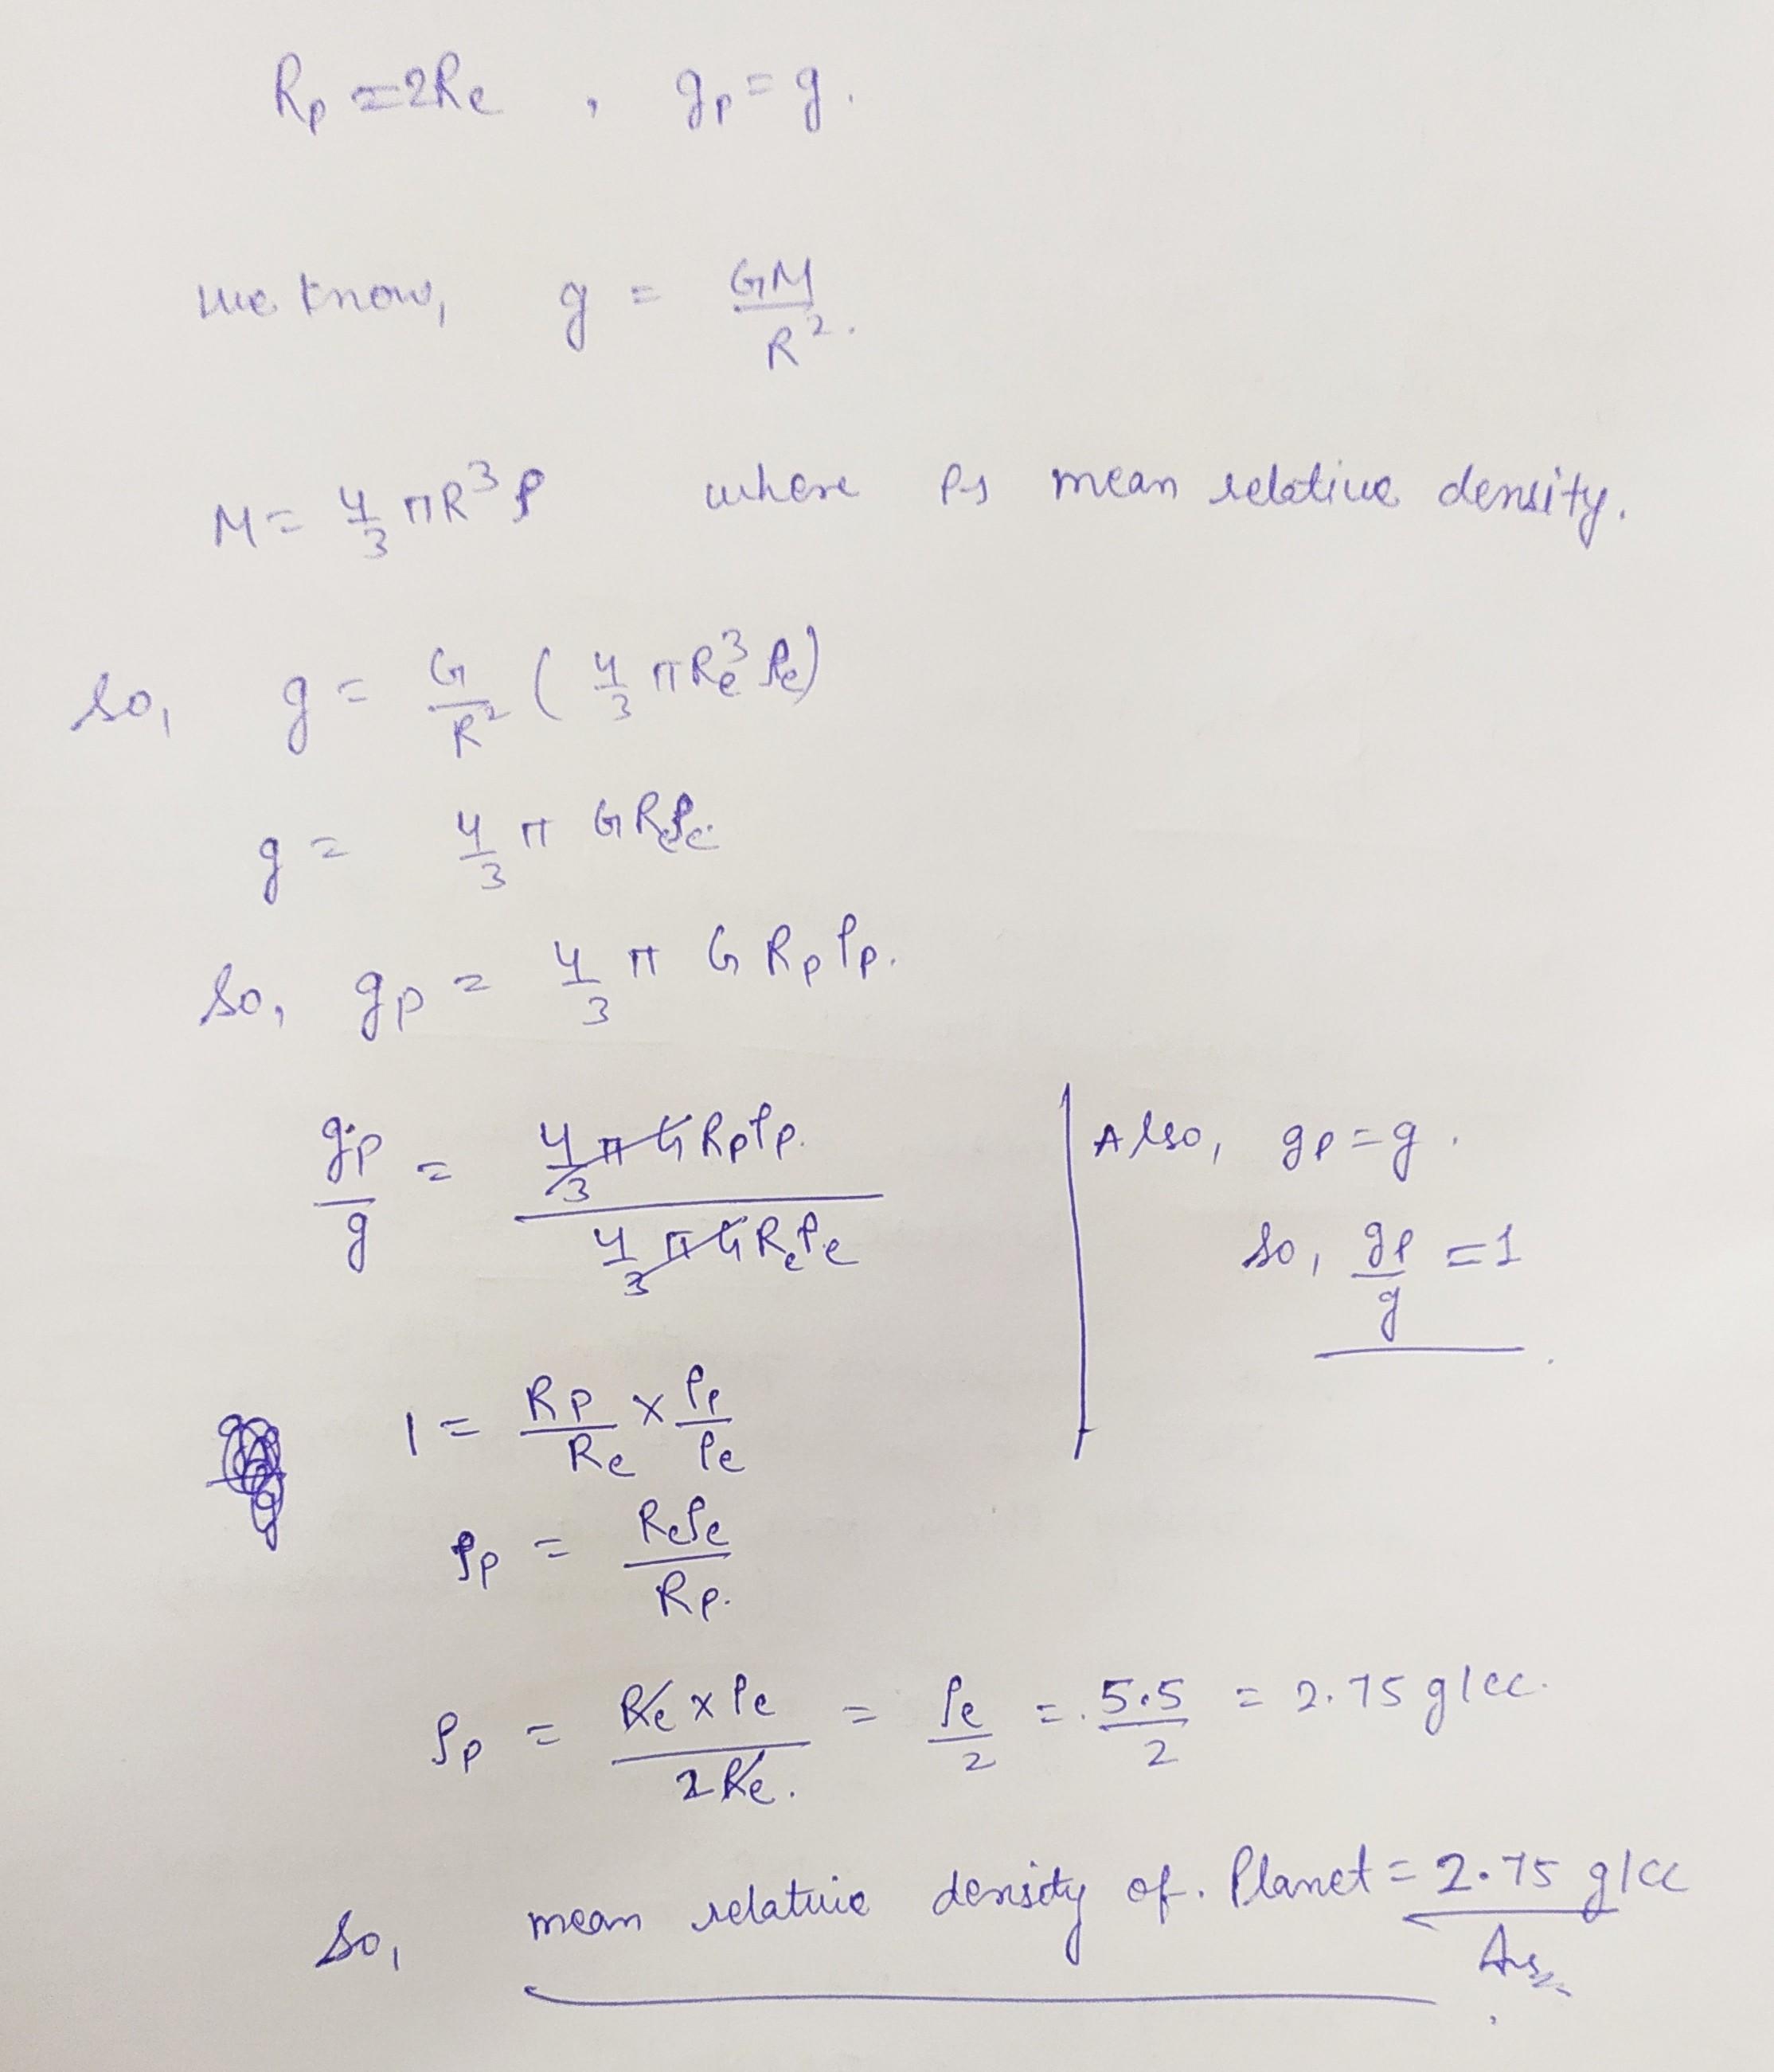 Rp = 2Re , gp = g.
we know, g = GM/R².
M = 4/3 πR³ρ where ρ is mean relative density.
So, g = G/R² ( 4/3 πRe³ρe)
g = 4/3 π GReρe
So, gp = 4/3 π G Rp ρp.
gp/g = 4/3 π G Rpρp. / 4/3 π G Reρe
Also, gp = g.
So, gp/g = 1
1 = Rp/Re × ρp/ρe
ρp = Reρe/Rp.
ρp = Re × ρe / 2Re. = ρe/2 = 5.5/2 = 2.75 g/cc.
So, mean relative density of. Planet = 2.75 g/cc
Ans